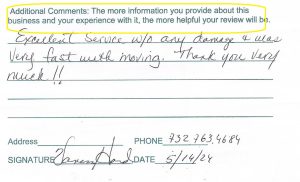 Additional Comments: The more information you provide about this
business and your experience with it, the more helpful your review will be.
Excellent Service w/o any damage & was
very fast with moving. Thank you very
much!!
Address PHONE 732 763,4684
SIGNATURE DATE 5/14/24